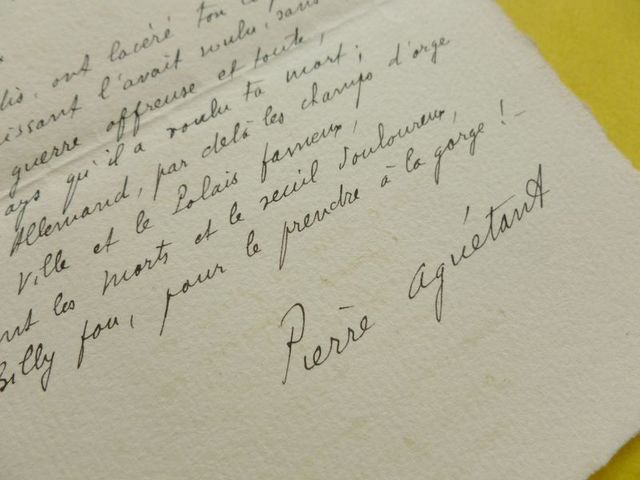 dis, ont lacéré ton
issant l'avait voulu, sans
guerre affreuse et toute,
ays qu'il a voulu ta mort ;
Allemand, par delà les champs d'orge
Ville et le Palais fameux,
nt les morts et le seuil douloureux,
Billy fou, pour le prendre à la gorge ! -
Pierre Aguétant